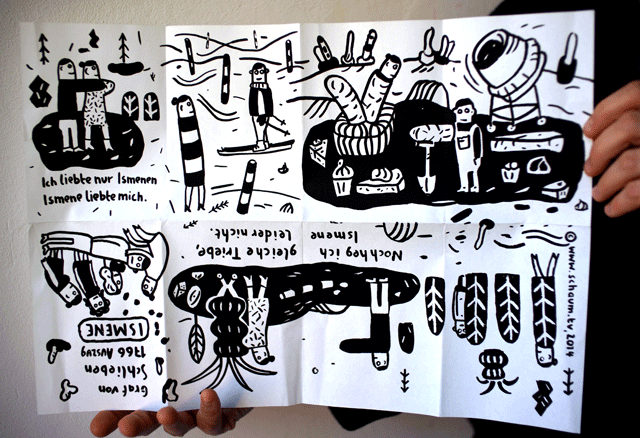 Ich liebte nur Ismenen
Ismene liebte mich.
Noch heg ich
Ismene
gleiche Triebe,
Leider nicht.
© www.schaum.tv, 2014
Graf von
Schlieben
1766 Auszug
ISMENE